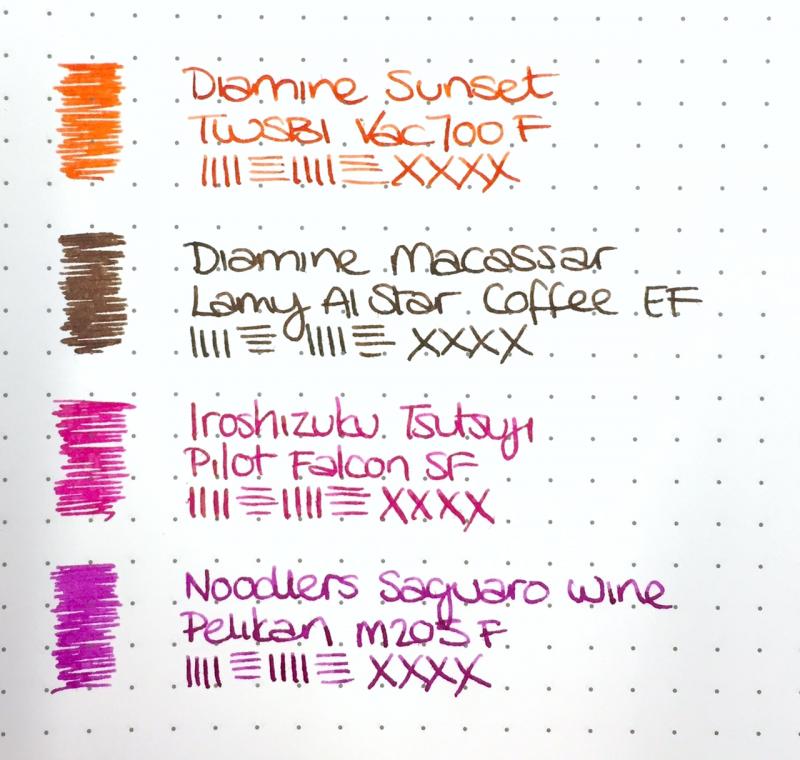 Diamine Sunset
TWSBI Vac700 F
Diamine Macassar
Lamy Al Star Coffee EF
Iroshizuku Tsutsuji
Pilot Falcon SF
XXXX
Noodlers Saguaro Wine
Pelikan M205 F
XXXX